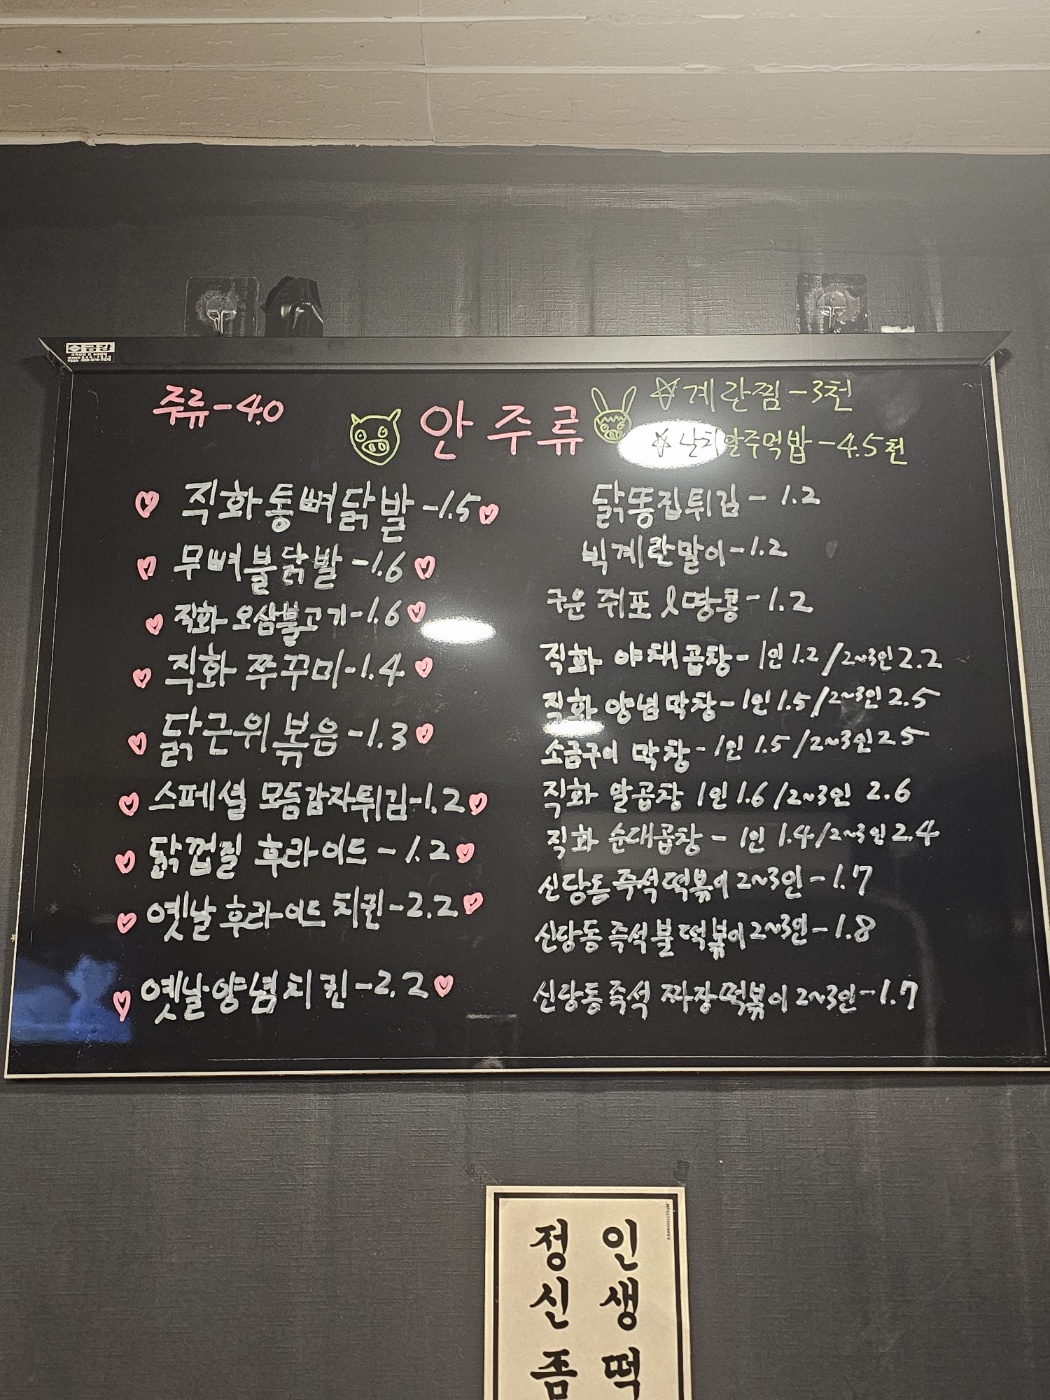 주류-4.0
안주류
☆계란찜-3천
☆날치알주먹밥-4.5천
직화통뼈닭발-1.5
무뼈불닭발-1.6
직화 오삼불고기-1.6
직화 쭈꾸미-1.4
닭근위볶음-1.3
스페셜 모듬감자튀김-1.2
닭껍질 후라이드-1.2
옛날후라이드 치킨-2.2
옛날양념치킨-2.2
닭똥집튀김-1.2
빅계란말이-1.2
구운 쥐포&땅콩-1.2
직화 야채곱창-1인1.2/2~3인2.2
직화 양념막창-1인1.5/2~3인2.5
소금구이 막창-1인1.5/2~3인2.5
직화 알곱창 1인1.6/2~3인 2.6
직화 순대곱창-1인 1.4/2~3인2.4
신당동즉석떡볶이2~3인-1.7
신당동즉석불떡볶이2~3인-1.8
신당동즉석 짜장떡볶이2~3인-1.7
인생떡
정신좀